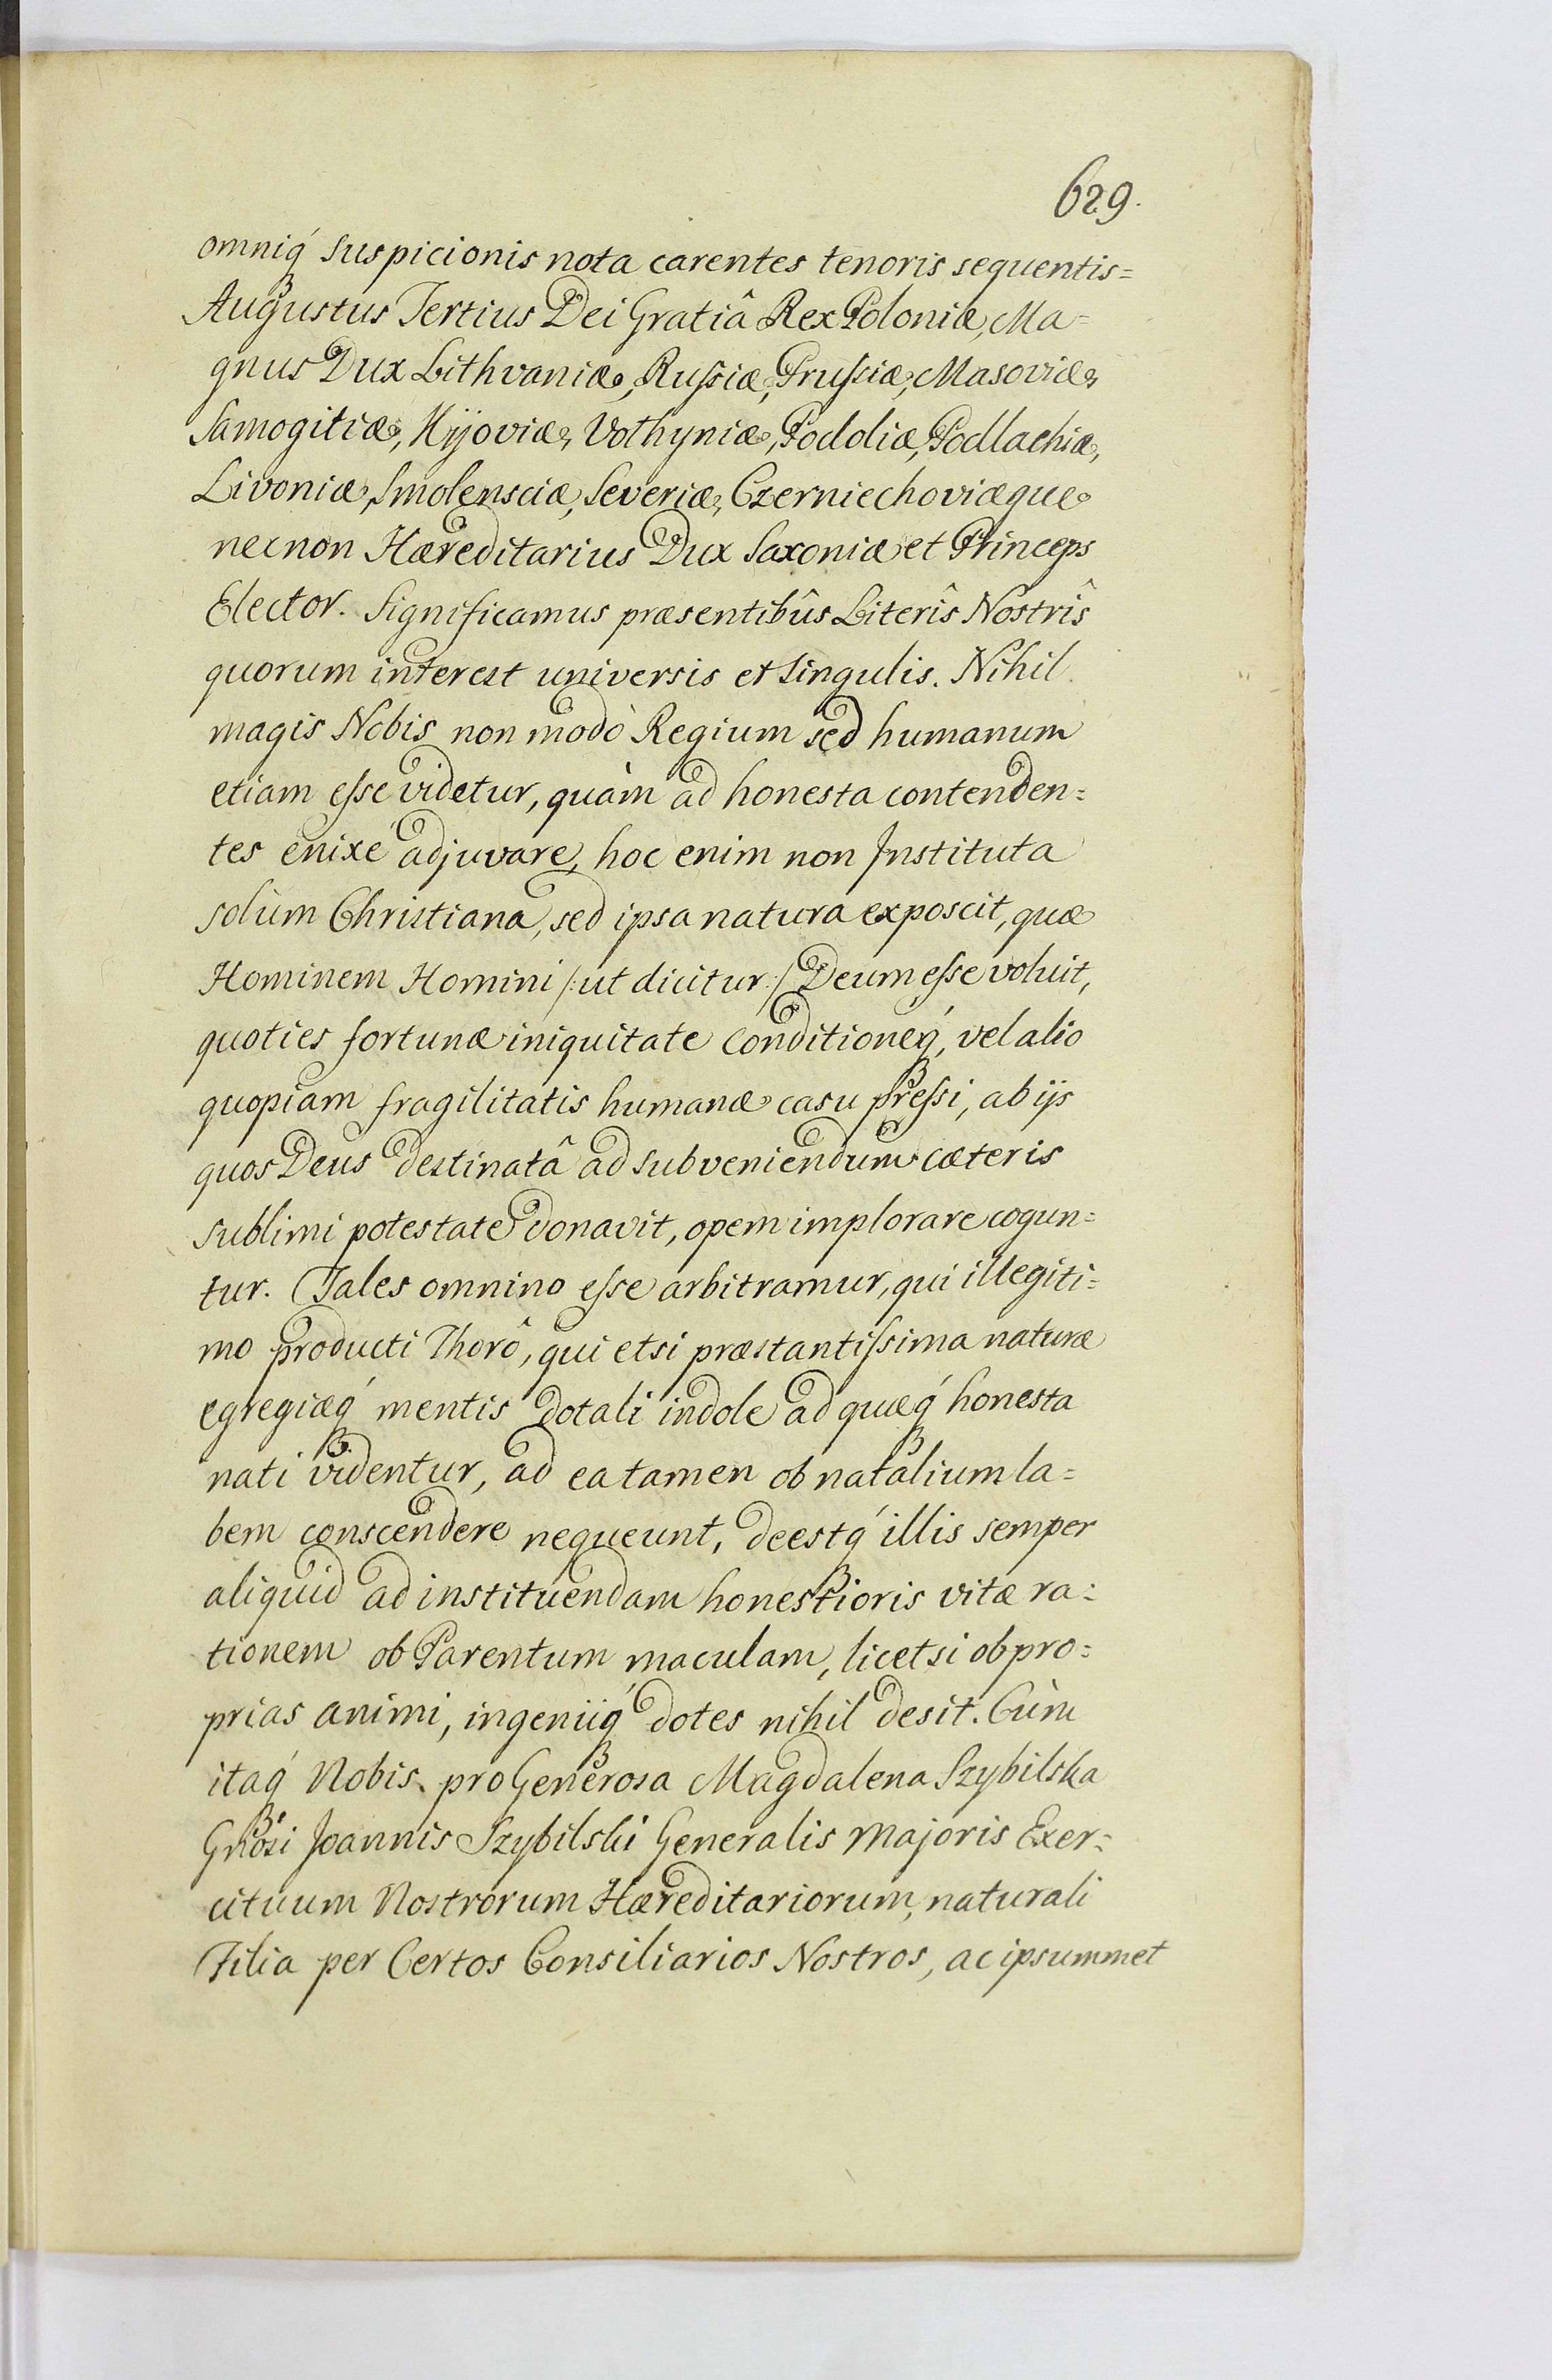 629.
omniq́ suspicionis nota carentes tenoris sequentis=
Augustus Tertius Dei Gratiâ Rex Poloniæ, Ma=
gnus Dux Lithvaniæ, Rusſiæ, Prusſiæ, Masoviæ,
Samogitiæ, Kÿoviæ, Volhyniæ, Podoliæ, Podlachiæ,
Livoniæ, Smolensciæ, Severiæ, Czerniechoviæque
necnon Hæreditarius Dux Saxoniæ et Princeps
Elector. Significamus præsentibûs Literîs Nostrîs
quorum interest universis et singulis. Nihil
magis Nobis non modò Regium sed humanum
etiam eſse videtur, quàm ad honesta contenden=
tes enixé adjuvare, hoc enim non Instituta
solùm Christiana, sed ipsa natura exposcit, quæ
Hominem Homini /:ut dicitur:/ Deum eſse voluit,
quoties fortunæ iniquitate conditioneq́, vel alio
quopiam fragilitatis humanæ casu preſsi, ab ijs
quos Deus destinatâ ad subveniendum cæteris
sublimi potestate donavit, opem implorare cogun=
tur. Tales omnino eſse arbitramur, qui illegiti=
mo producti Thorô, qui etsi præstantiſsima naturæ
egregiæq́ mentis dotali indole ad quæq́ honesta
nati videntur, ad ea tamen ob natalium la=
bem conscendere nequeunt, deestq́ illis semper
aliquid ad instituendam honestioris vitæ ra=
tionem ob Parentum maculam, licet si ob pro=
prias animi, ingeniiq́ dotes nihil desit. Cùm
itaq́ Nobis pro Generosa Magdalena Szybilska
Gnosi Joannis Szybilski Generalis Majoris Exer=
cituum Nostrorum Hæreditariorum, naturali
Filia per Certos Consiliarios Nostros, ac ipsummet